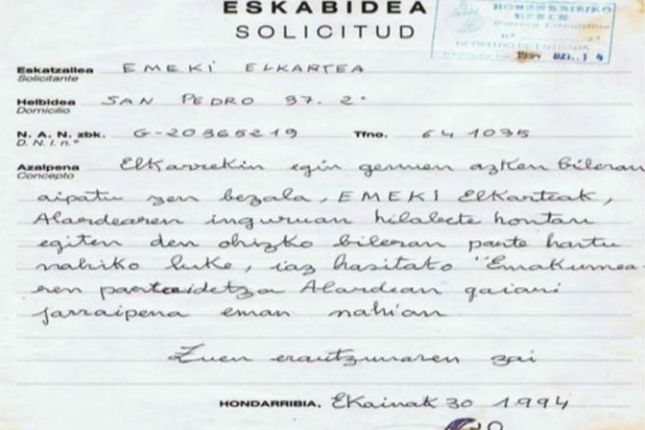 ESKABIDEA
SOLICITUD
HONDARRIBIKO
UDALA
1994 UZI. 14
Eskatzailea EMEKI ELKARTEA
Solicitante
Helbidea SAN PEDRO 37. 2º
Domicilio
N. A. N. zbk. G-20365219 Tfno. 641035
D. N. I. n.º
Azalpena Elkarrekin egin genuen azken bileran
Concepto
aipatu zen bezala, EMEKI Elkarteak,
Alardearen inguruan hilabete hontan
egiten den ohizko bileran parte hartu
nahiko luke, iaz hasitako "Emakumea-
ren partaidetza Alardean gaiari
jarraipena eman nahian
Zuen erantzunaren zai
HONDARRIBIA, EKainak 30 1994